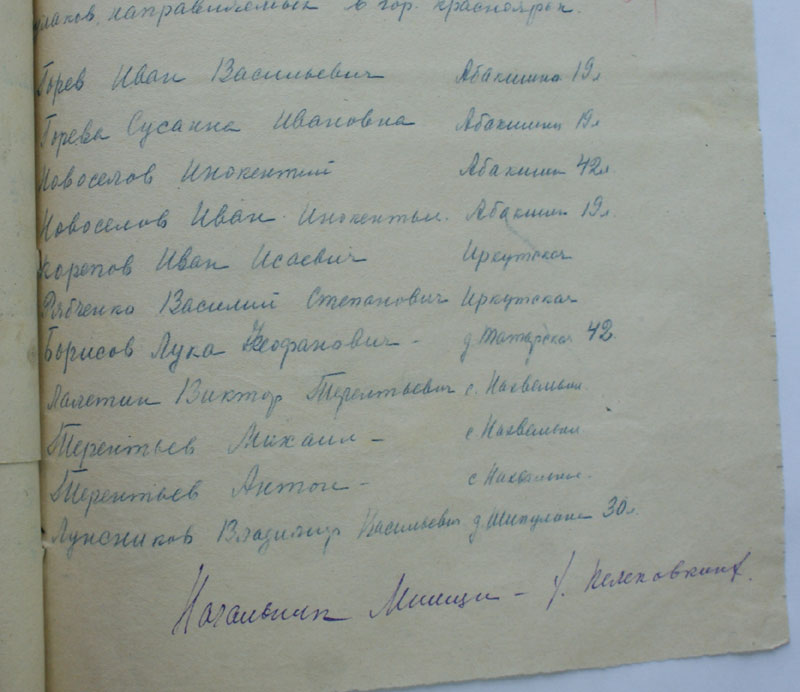 направляемых в гор. Красноярск.
Горев Иван Васильевич Абакишна 19л
Горева Сусанна Ивановна Абакишна 19л
Новоселов Инокентий Абакишн 42л
Новоселов Иван Инокентьи. Абакишн 19л.
Иван Исаевич Иркутская
Рябченко Василий Степанович Иркутская
Борисов Лука Феофанович - д Татарская 42
Лалетин Виктор Терентьевич с.
Терентьев Михаил - с
Терентьев Антон - с
Владимир Васильевич д 30л.
Начальник Милици -